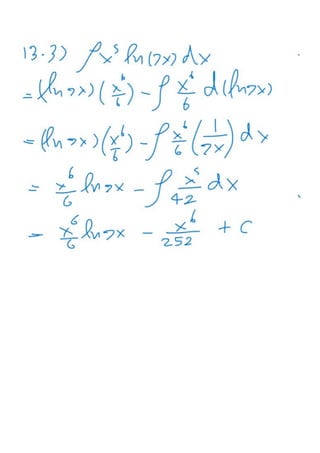 13.3) ∫x⁵ ln(7x) dx
= (ln 7x)(x⁶/6) - ∫ x⁶/6 d(ln 7x)
= (ln 7x)(x⁶/6) - ∫ x⁶/6 (1/7x) dx
= x⁶/6 ln 7x - ∫ x⁵/42 dx
= x⁶/6 ln 7x - x⁶/252 + C